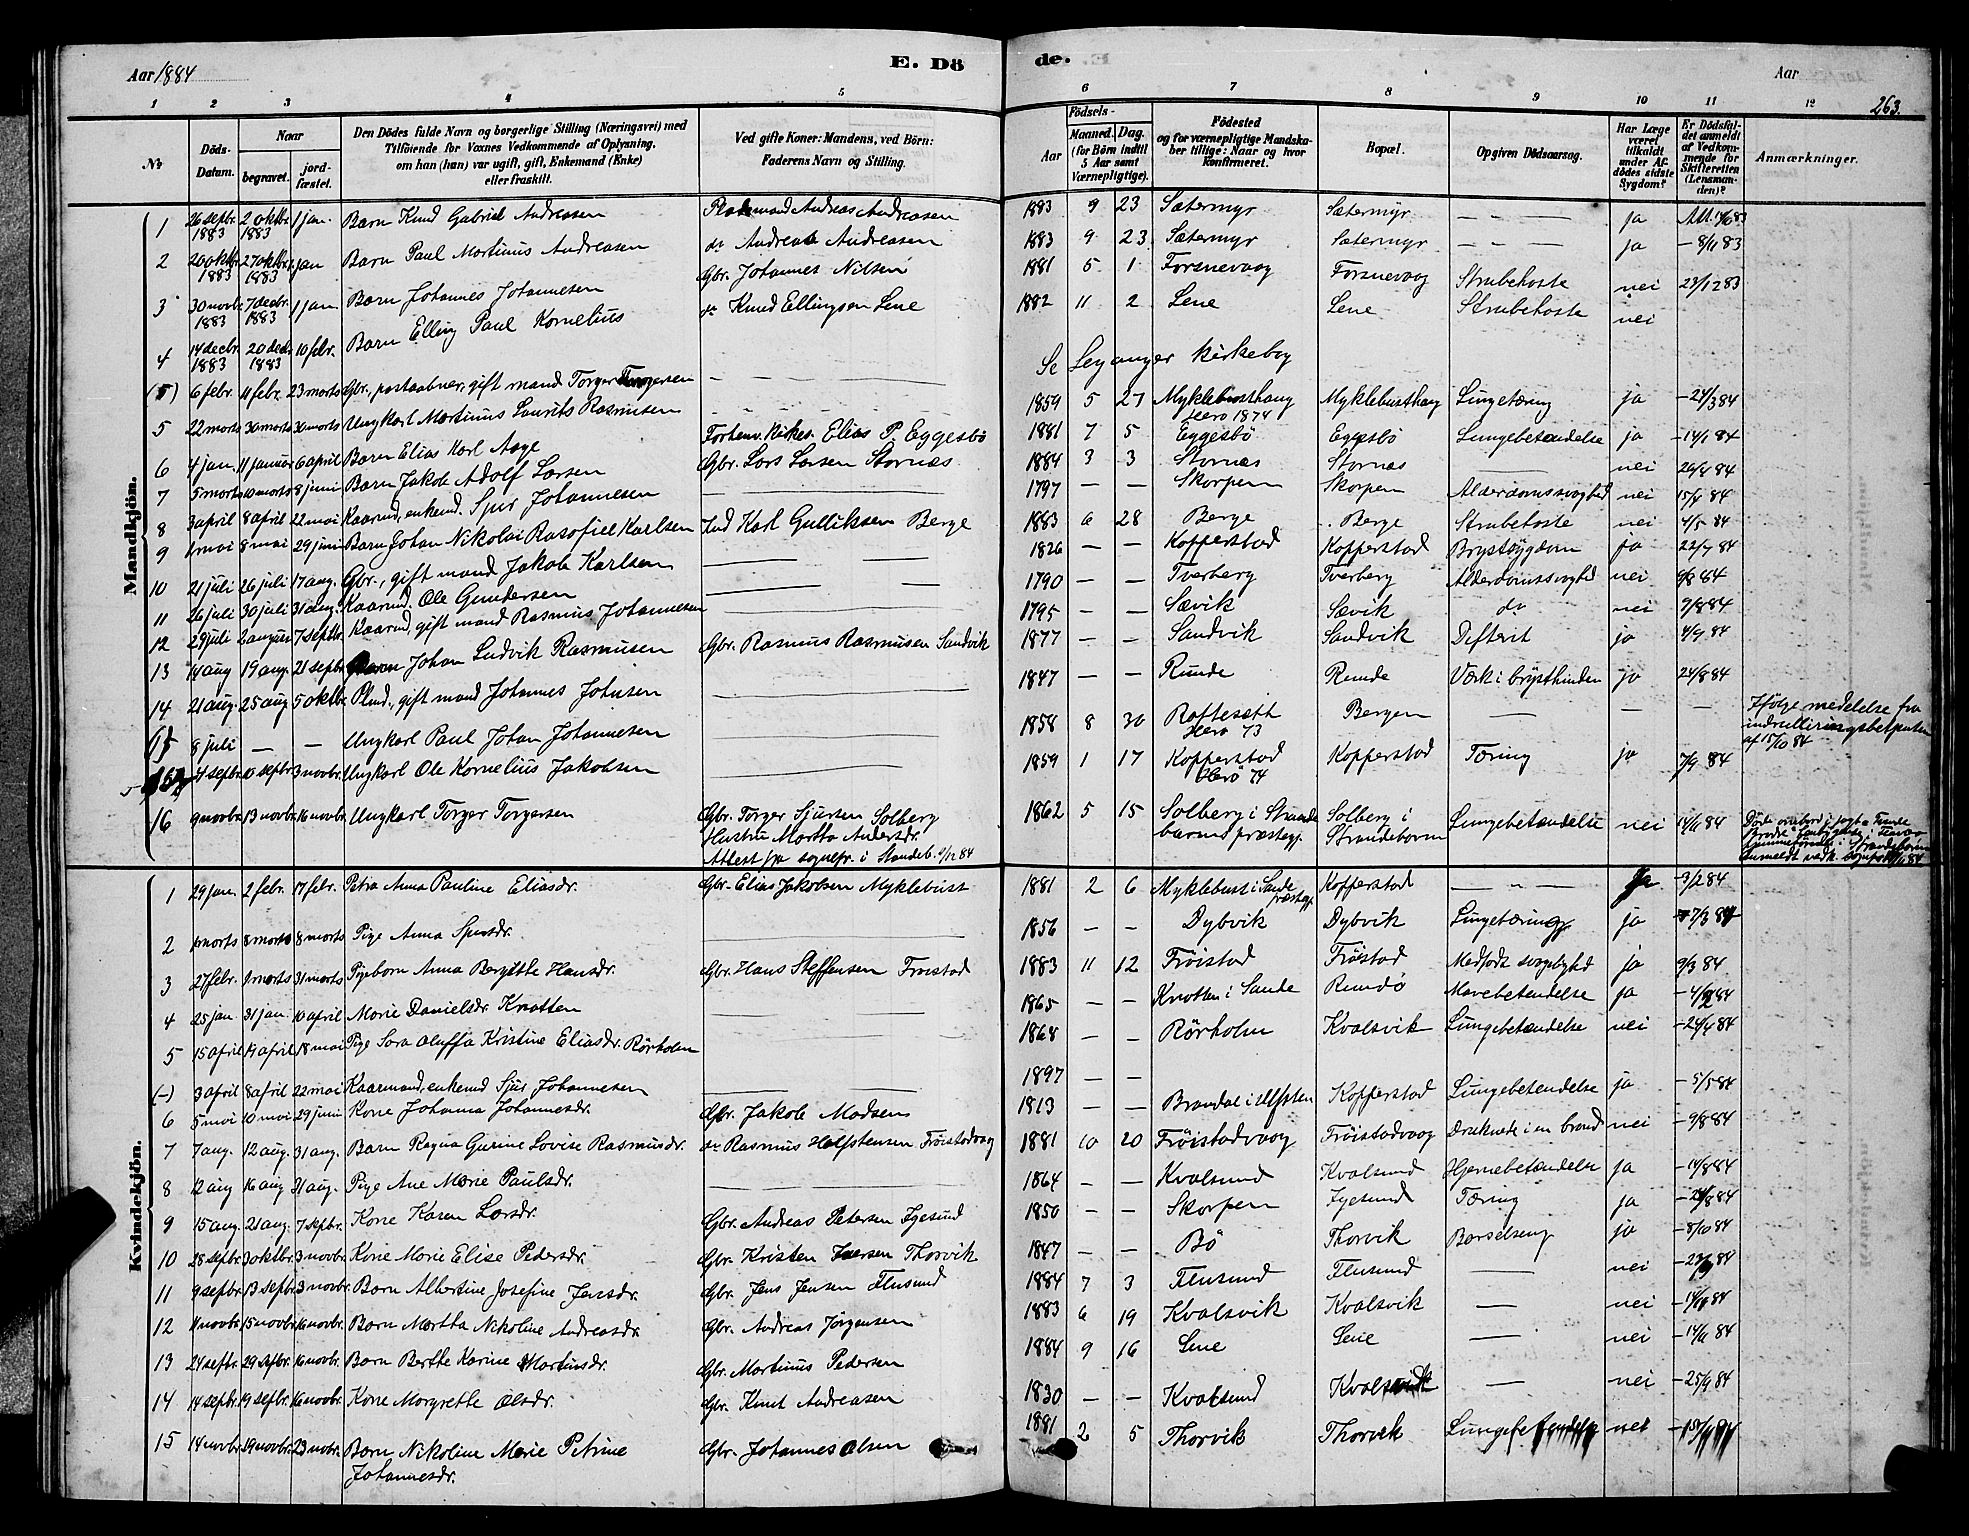 Aar 1884
E. Dö
de.
Aar
263.
1 2 3 4 5 6 7 8 9 10 11 12
Nr.
Döds-Datum.
Naar
begravet.
jordfæstet.
Den Dödes fulde Navn og borgerlige Stilling (Næringsvei) med Tilföiende for Voxnes Vedkommende af Oplysning, om han (hun) var ugift, gift, Enkemand (Enke) eller fraskilt.
Ved gifte Koner: Mandens, ved Börn: Faderens Navn og Stilling.
Födsels-
Aar
Maaned. Dag.
(for Börn indtil 5 Aar samt Værnepligtige).
Födested og for værnepligtige Mandskaber tillige: Naar og hvor Konfirmeret.
Bopæl.
Opgiven Dödsaarsag.
Har Læge været tilkaldt under Afdödes sidste Sygdom?
Er Dödsfaldet anmeldt af Vedkommende for Skifteretten (Lensmanden)?
Anmærkninger.
Mandkjön.
1 26 septbr. 1883 2 oktbr. 1883 1 jan. Barn Knud Gabriel Andreasen Andreas Andreasen 1883 9 23 Sætermyr Sætermyr — — — ja
2 20 oktbr. 1883 27 oktbr. 1883 1 jan Barn Paul Martinus Andreasen do Andreas Andreasen 1883 9 23 Sætermyr Sætermyr — — — ja — 8/11 83
3 30 novbr. 1883 7 decbr. 1883 1 jan. Barn Johannes Johannesen Gbr. Johannes Nilsen 1881 5 1 Forsnevaag Forsnevaag Strubehoste nei 23/12 83
4 14 decbr. 1883 20 decbr. 1883 10 febr. Barn Elling Paul Kornelius do Knud Ellingsen Lene 1882 11 2 Lene Lene Strubehoste nei
(5) 6 febr. 11 febr. 23 marts Gbr., postaabner, gift mand Torger Torgersen — — — Se Leganger kirkebog
5 22 marts 30 marts 30 marts Ungkarl Martinus Laurits Rasmusen — — — 1859 5 27 Myklebusthaug Herö 1874 Myklebusthaug Lungetæring ja — 24/3 84
6 4 jan. 11 januar 6 april Barn Elias Karl Aage Forhenv. kirkes. Elias P. Eggesbö 1881 7 5 Eggesbö Eggesbö Lungebetændelse ja — 14/1 84
7 5 marts 10 marts 8 juni Barn Jakob Adolf Larsen Gbr. Lars Larsen Stornæs 1884 3 3 Stornæs Stornæs — nei 26/4 84
8 3 april 8 april 22 mai Kaarmd., enkemd. Sjur Johannesen — — 1797 — — Skorpen Skorpen Alderdomssvaghed nei 15/4 84
9 1 mai 8 mai 29 juni Barn Johan Nikolai Rasofiel Karlsen Ind. Karl Gulliksen Berge 1883 6 28 Berge Berge Strubehoste nei 4/5 84
10 21 juli 26 juli 17 aug. Gbr., gift mand Jakob Karlsen — — 1826 — — Kopperstad Kopperstad Brystsygdom ja 22/7 84
11 26 juli 30 juli 31 aug. Kaarmd. Ole Gundersen — — 1790 — — Tverberg Tverberg Alderdomssvaghed nei 9/8 84
12 29 juli 2 august 7 septbr. Kaarmd., gift mand Rasmus Johannesen 1795 — — Sævik Sævik do nei 9/8 84
13 14 aug 19 aug. 21 septbr. Barn Johan Ludvik Rasmusen Gbr. Rasmus Rasmusen Sandvik 1877 — — Sandvik Sandvik Difterit ja 4/9 84
14 21 aug. 25 aug 5 oktbr. Plmd., gift mand Johannes Johnsen — 1847 — — Runde Runde Værk i brysthinden ja 24/8 84
15 8 juli — — Ungkarl Paul Johan Johannesen — 1858 8 30 Roftesæth Herö 73 Bergen — — — Ifølge meddelelse fra
af 15/10 84
4 septbr. 10 septbr. 3 novbr. Ungkarl Ole Kornelius Jakobsen — 1859 1 17 Kopperstad Herö 74 Kopperstad Tæring ja 7/9 84
16 9 novbr. 13 novbr. 16 novbr. Ungkarl Torger Torgersen Gbr. Torger Sjursen Solberg 1862 5 15 Solberg i Strande- Solberg i Lungebetændelse nei 14/11 84
Hustru Martha Andersdr. barms præstegj. Strandebarm
Attest fra sognepr. i Strandeb. 84
Kvindekjön.
1 29 jan. 2 febr. 17 febr. Petra Anna Pauline Eliasdr. Gbr. Elias Jakobsen Myklebust 1881 2 6 Myklebust i Sande præstegj. Kopperstad — " — Ja — 3/2 84
2 1 marts 8 marts 8 marts Pige Anna Sjursdr. — 1856 — — Dybvik Dybvik Lungetæring ja — 7/3 84
3 27 febr. 9 marts 31 marts Pigebarn Anna Bergithe Hansdr. Gbr. Hans Steffensen Fröistad 1883 11 12 Fröistad Fröistad Medfødt svagelighed ja 9/3 84
4 25 jan 31 jan. 10 april Marie Danielsdr. Knotten — 1865 — — Knotten i Sande Rundö Mavebetændelse ja — 4/2 84
5 15 april 19 april 18 mai Pige Sara Oluffa Kristine Eliasdr. Rörholm 1864 — — Rörholm Kvalsvik Lungebetændelse nei — 24/4 84
(-) 3 april 8 april 22 mai Kaarmand, enkemd Sjur Johannesen — 1897 — —
6 5 mai 10 mai 29 juni Kone Johanna Johannesdr. Gbr. Jakob Madsen 1813 — — Brandal i Ulfsten Kopperstad Lungebetændelse ja — 5/5 84
7 7 aug. 12 aug. 31 aug. Barn Ragna Gurine Lovise Rasmusdr. do Rasmus Halfstensen Fröistadvaag 1881 10 20 Fröistadvaag Fröistadvaag Druknede i en brønd nei — 9/8 84
8 12 aug 16 aug 31 aug. Pige Ane Marie Paulsdr. — 1864 — — Kvalsund Kvalsund Hjernebetændelse ja — 14/8 84
9 15 aug. 21 aug. 7 septbr. Kone Karen Larsdr. Gbr. Andreas Petersen Igesund 1850 — — Skorpen Igesund Tæring ja
10 28 septbr. 3 oktbr. 3 novbr. Kone Marie Elise Pedersdr. Gbr. Kristen Iversen Thorvik 1847 — — Bö Thorvik Barselseng ja — 8/10 84
11 9 septbr. 13 septbr. 3 novbr. Barn Albertine Josefine Jensdr. Gbr. Jens Jensen Flusund 1884 7 3 Flusund Flusund — nei
12 11 novbr. 15 novbr. 16 novbr. Barn Martha Nikoline Andreasdr. Gbr. Andreas Jørgensen 1883 6 19 Kvalsvik Kvalsvik — nei
13 24 septbr. 29 septbr. 16 novbr. Barn Berthe Karine Martinusdr. Gbr. Martinus Pedersen 1884 9 16 Lene Lene — nei — 14/11 84
14 14 septbr. 19 septbr. 16 novbr. Kone Margrethe Olsdr. Gbr. Knut Andreasen 1830 — — Kvalsund Kvalsvik — nei — 25/9 84
15 14 novbr. 19 novbr. 23 novbr. Barn Nikoline Marie Petrine Gbr. Johannes Olsen 1881 2 5 Thorvik Thorvik Lungebetændelse nei
Johannesdr.